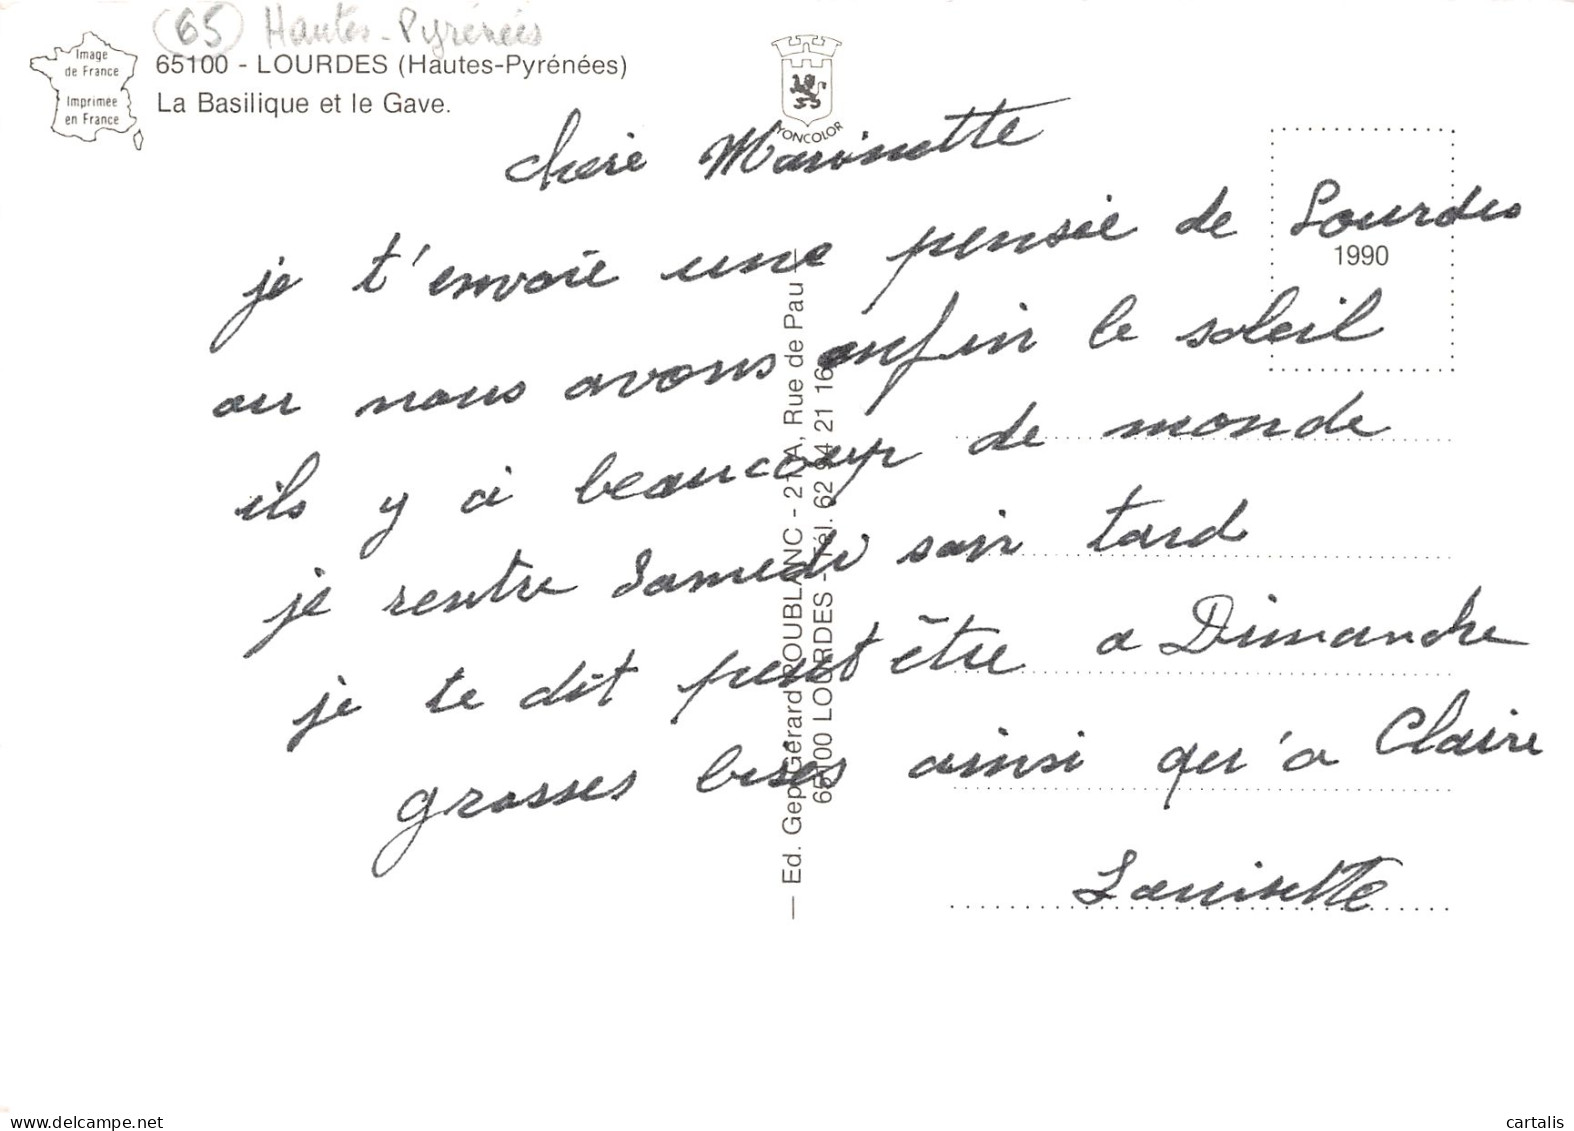 65 Hautes-Pyrénées
Image
de France
Imprimée
en France
65100 - LOURDES (Hautes-Pyrénées)
La Basilique et le Gave.
YONCOLOR
1990
chère Marinette
je t'envoie une pensée de Lourdes
ou nous avons enfin le soleil
ils y a beaucoup de monde
je rentre Samedi soir tard
je te dit peut être a Dimanche
grosses bises ainsi qu'a Claire
Louisette
— Ed. Gep Gérard DOUBLANC - 21 A, Rue de Pau —
65100 LOURDES - Tél. 62 94 21 16
cartalis
www.delcampe.net